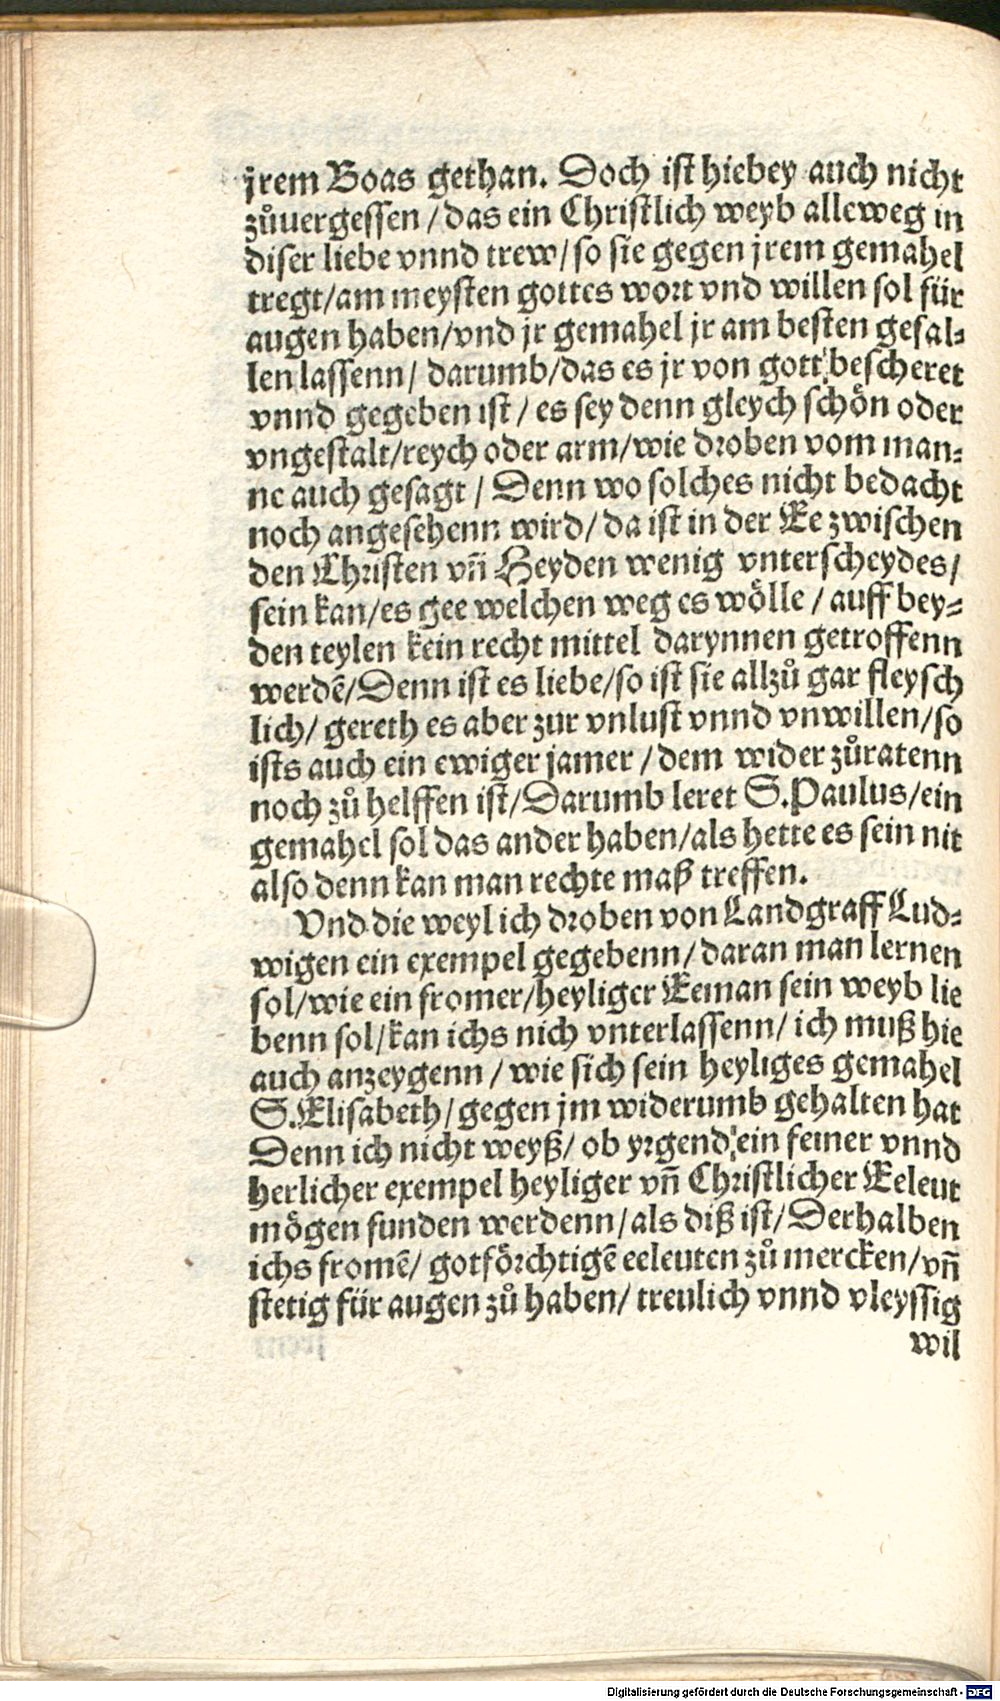 jrem Boas gethan. Doch ist hiebey auch nicht
zůuergessen / das ein Christlich weyb alleweg in
diser liebe vnnd trew / so sie gegen jrem gemahel
tregt / am meysten gottes wort vnd willen sol für
augen haben / vnd jr gemahel jr am besten gefal-
len lassenn / darumb / das es jr von gott bescheret
vnnd gegeben ist / es sey denn gleych schön oder
vngestalt / reych oder arm / wie droben vom man-
ne auch gesagt / Denn wo solches nicht bedacht
noch angesehenn wird / da ist in der Ee zwischen
den Christen vñ Heyden wenig vnterscheydes /
sein kan / es gee welchen weg es wölle / auff bey-
den teylen kein recht mittel darynnen getroffenn
werdẽ / Denn ist es liebe / so ist sie allzů gar fleysch
lich / gereth es aber zur vnlust vnnd vnwillen / so
ists auch ein ewiger jamer / dem wider zůratenn
noch zů helffen ist / Darumb leret S. Paulus / ein
gemahel sol das ander haben / als hette es sein nit
also denn kan man rechte maß treffen.
Vnd die weyl ich droben von Landgraff Lud-
wigen ein exempel gegebenn / daran man lernen
sol / wie ein fromer / heyliger Eeman sein weyb lie
benn sol / kan ichs nich vnterlassenn / ich muß hie
auch anzeygenn / wie sich sein heyliges gemahel
S. Elisabeth / gegen jm widerumb gehalten hat
Denn ich nicht weyß / ob yrgend ein feiner vnnd
herlicher exempel heyliger vñ Christlicher Eeleut
mögen funden werdenn / als diß ist / Derhalben
ichs fromẽ / gotförchtigẽ eeleuten zů mercken / vñ
stetig für augen zů haben / treulich vnnd vleyssig
wil
Digitalisierung gefördert durch die Deutsche Forschungsgemeinschaft - DFG